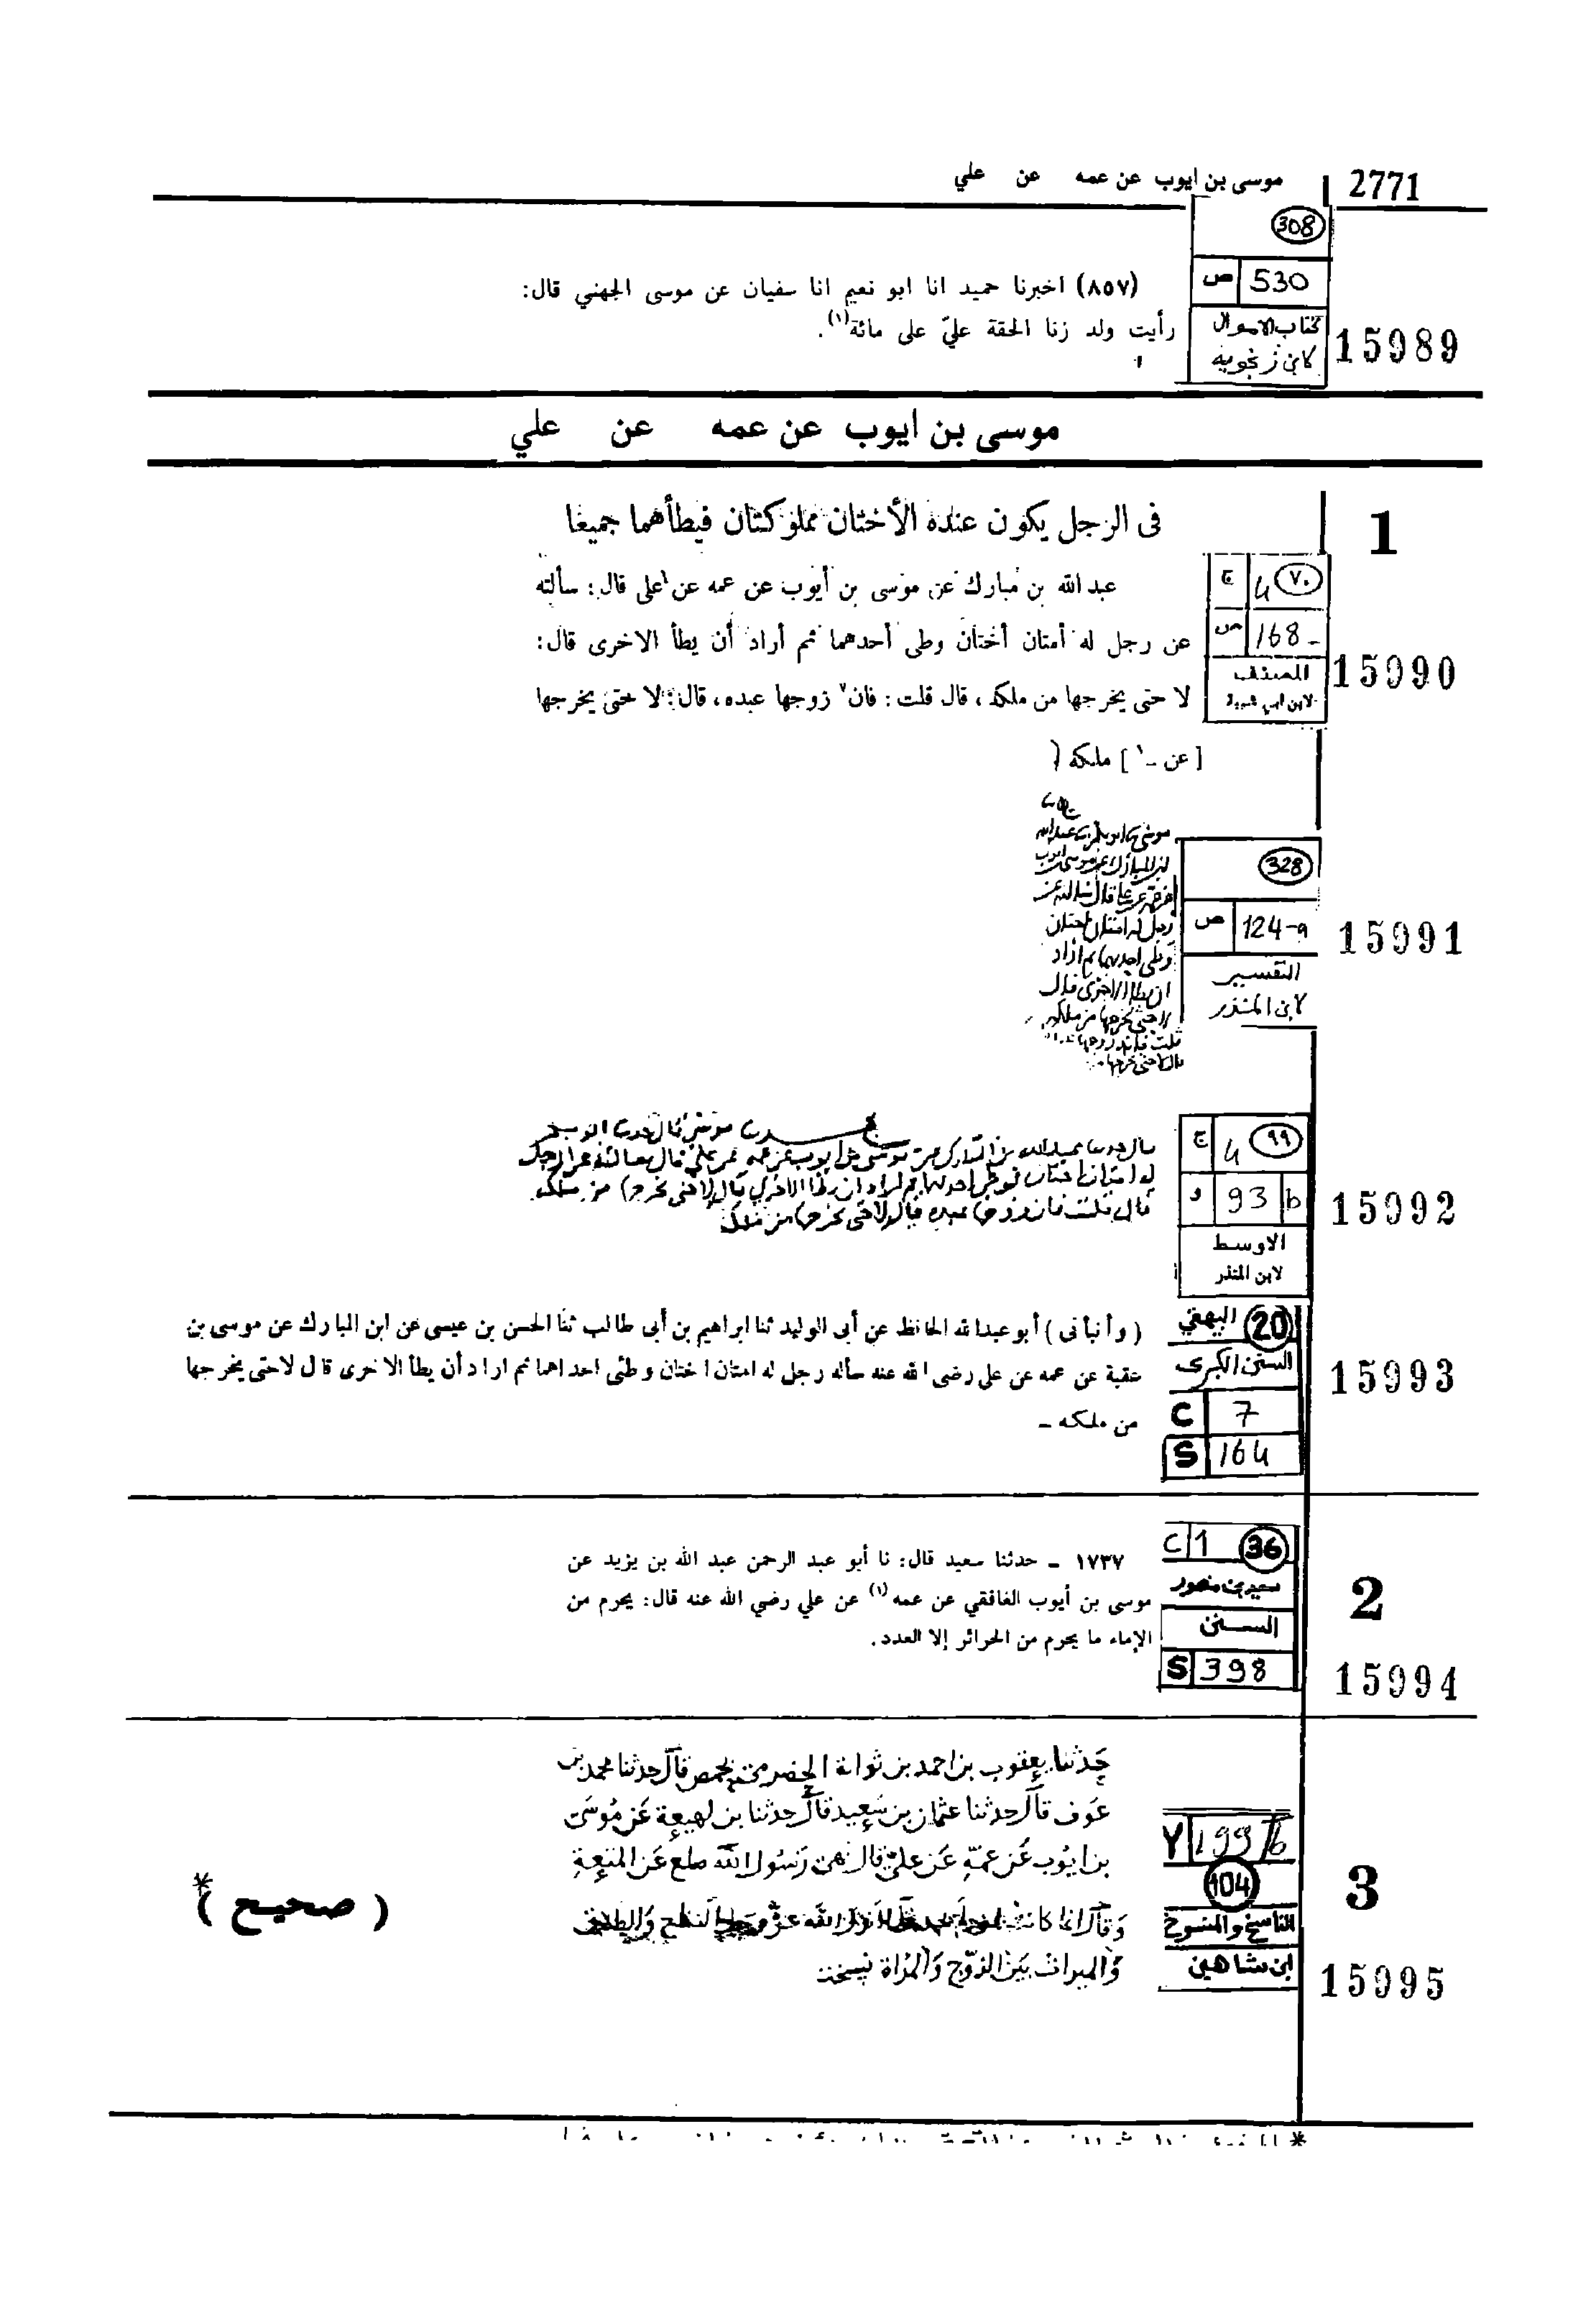 2771 موسى بن ايوب عن عمه عن علي
308
530 ص
كتاب الاموال
لابن زنجويه
15989
(٨٥٧) اخبرنا حميد انا ابو نعيم انا سفيان عن موسى الجهني قال:
رأيت ولد زنا الحقة عليّ على مائة(١).
موسى بن ايوب عن عمه عن علي
1
فى الرجل يكون عنده الأختان مملوكتان فيطأهما جميعا
٧٠ 4 ج
168 ص
المصنف
لابن ابي شيبة
15990
عبد الله بن مبارك عن موسى بن أيوب عن عمه عن على قال: سألته
عن رجل له أمتان أختان وطى أحدهما ثم أراد أن يطأ الاخرى قال:
لا حتى يخرجها من ملكه، قال قلت: فان زوجها عبده، قال: لا حتى يخرجها
[عن -١] ملكه
328
124-a ص
التفسير
لابن المنذر
15991
رجل له امتان اختان
وطى احديهما ثم اراد
ان يطا الاخرى قال
لا حتى يخرجها من ملكه
٩٩ 4 ج
b 93 و
الاوسط
لابن المنذر
15992
عبد الله بن المبارك عن موسى بن ايوب عن عمه عن علي قال سالته عن الرجل
له امتان اختان فوطى احديهما ثم اراد ان يطا الاخرى قال لا حتى يخرجها من ملكه
قال قلت فان زوجها عبده قال لا حتى يخرجها من ملكه
20 البيهقي
السنن الكبرى
C 7
S 164
15993
(وأنبأنى) أبو عبدالله الحافظ عن أبى الوليد ثنا ابراهيم بن أبى طالب ثنا الحسن بن عيسى عن ابن المبارك عن موسى بن
عقبة عن عمه عن على رضى الله عنه سأله رجل له امتان اختان وطئى احداهما ثم اراد أن يطأ الاخرى قال لاحتى يخرجها
من ملكه -
2
36 C 1
سعيد بن منصور
السنن
S 398
15994
١٧٣٧ - حدثنا سعيد قال: نا أبو عبد الرحمن عبد الله بن يزيد عن
موسى بن أيوب الغافقي عن عمه(١) عن علي رضي الله عنه قال: يحرم من
الإماء ما يحرم من الحرائر إلا العدد.
3
Y 199/b
104
الناسخ والمنسوخ
ابن شاهين
15995
حَدثنا يعقوب بن احمد بن ثوابة الحضرمي بحمص قال حدثنا محمد بن
عَوف قال حدثنا عثمان بن سَعِيد قال حدثنا بن لهيعة عَن مُوسَى
بن ايوب عَن عمّهِ عَن عليّ قال نهى رَسُول الله صلع عَن المتعةِ
وَقال انما كانت الله عزّ وجل النكاح والطلاق
وَالميراث بَين الزوّج وَالمرْأة نسخت
( صحيح )*